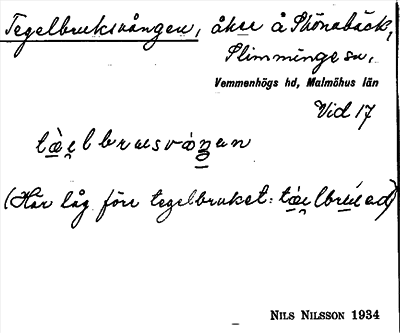 Tegelbruksvången, åker å Skönabäck,
Slimminge sn,
Vemmenhögs hd, Malmöhus län
Vid 17
(Här låg förr tegelbruket:
NILS NILSSON 1934